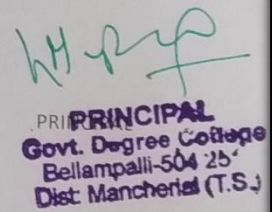 PRINCIPAL
Govt. Degree College
Bellampalli-504 25
Dist: Mancherial (T.S.)